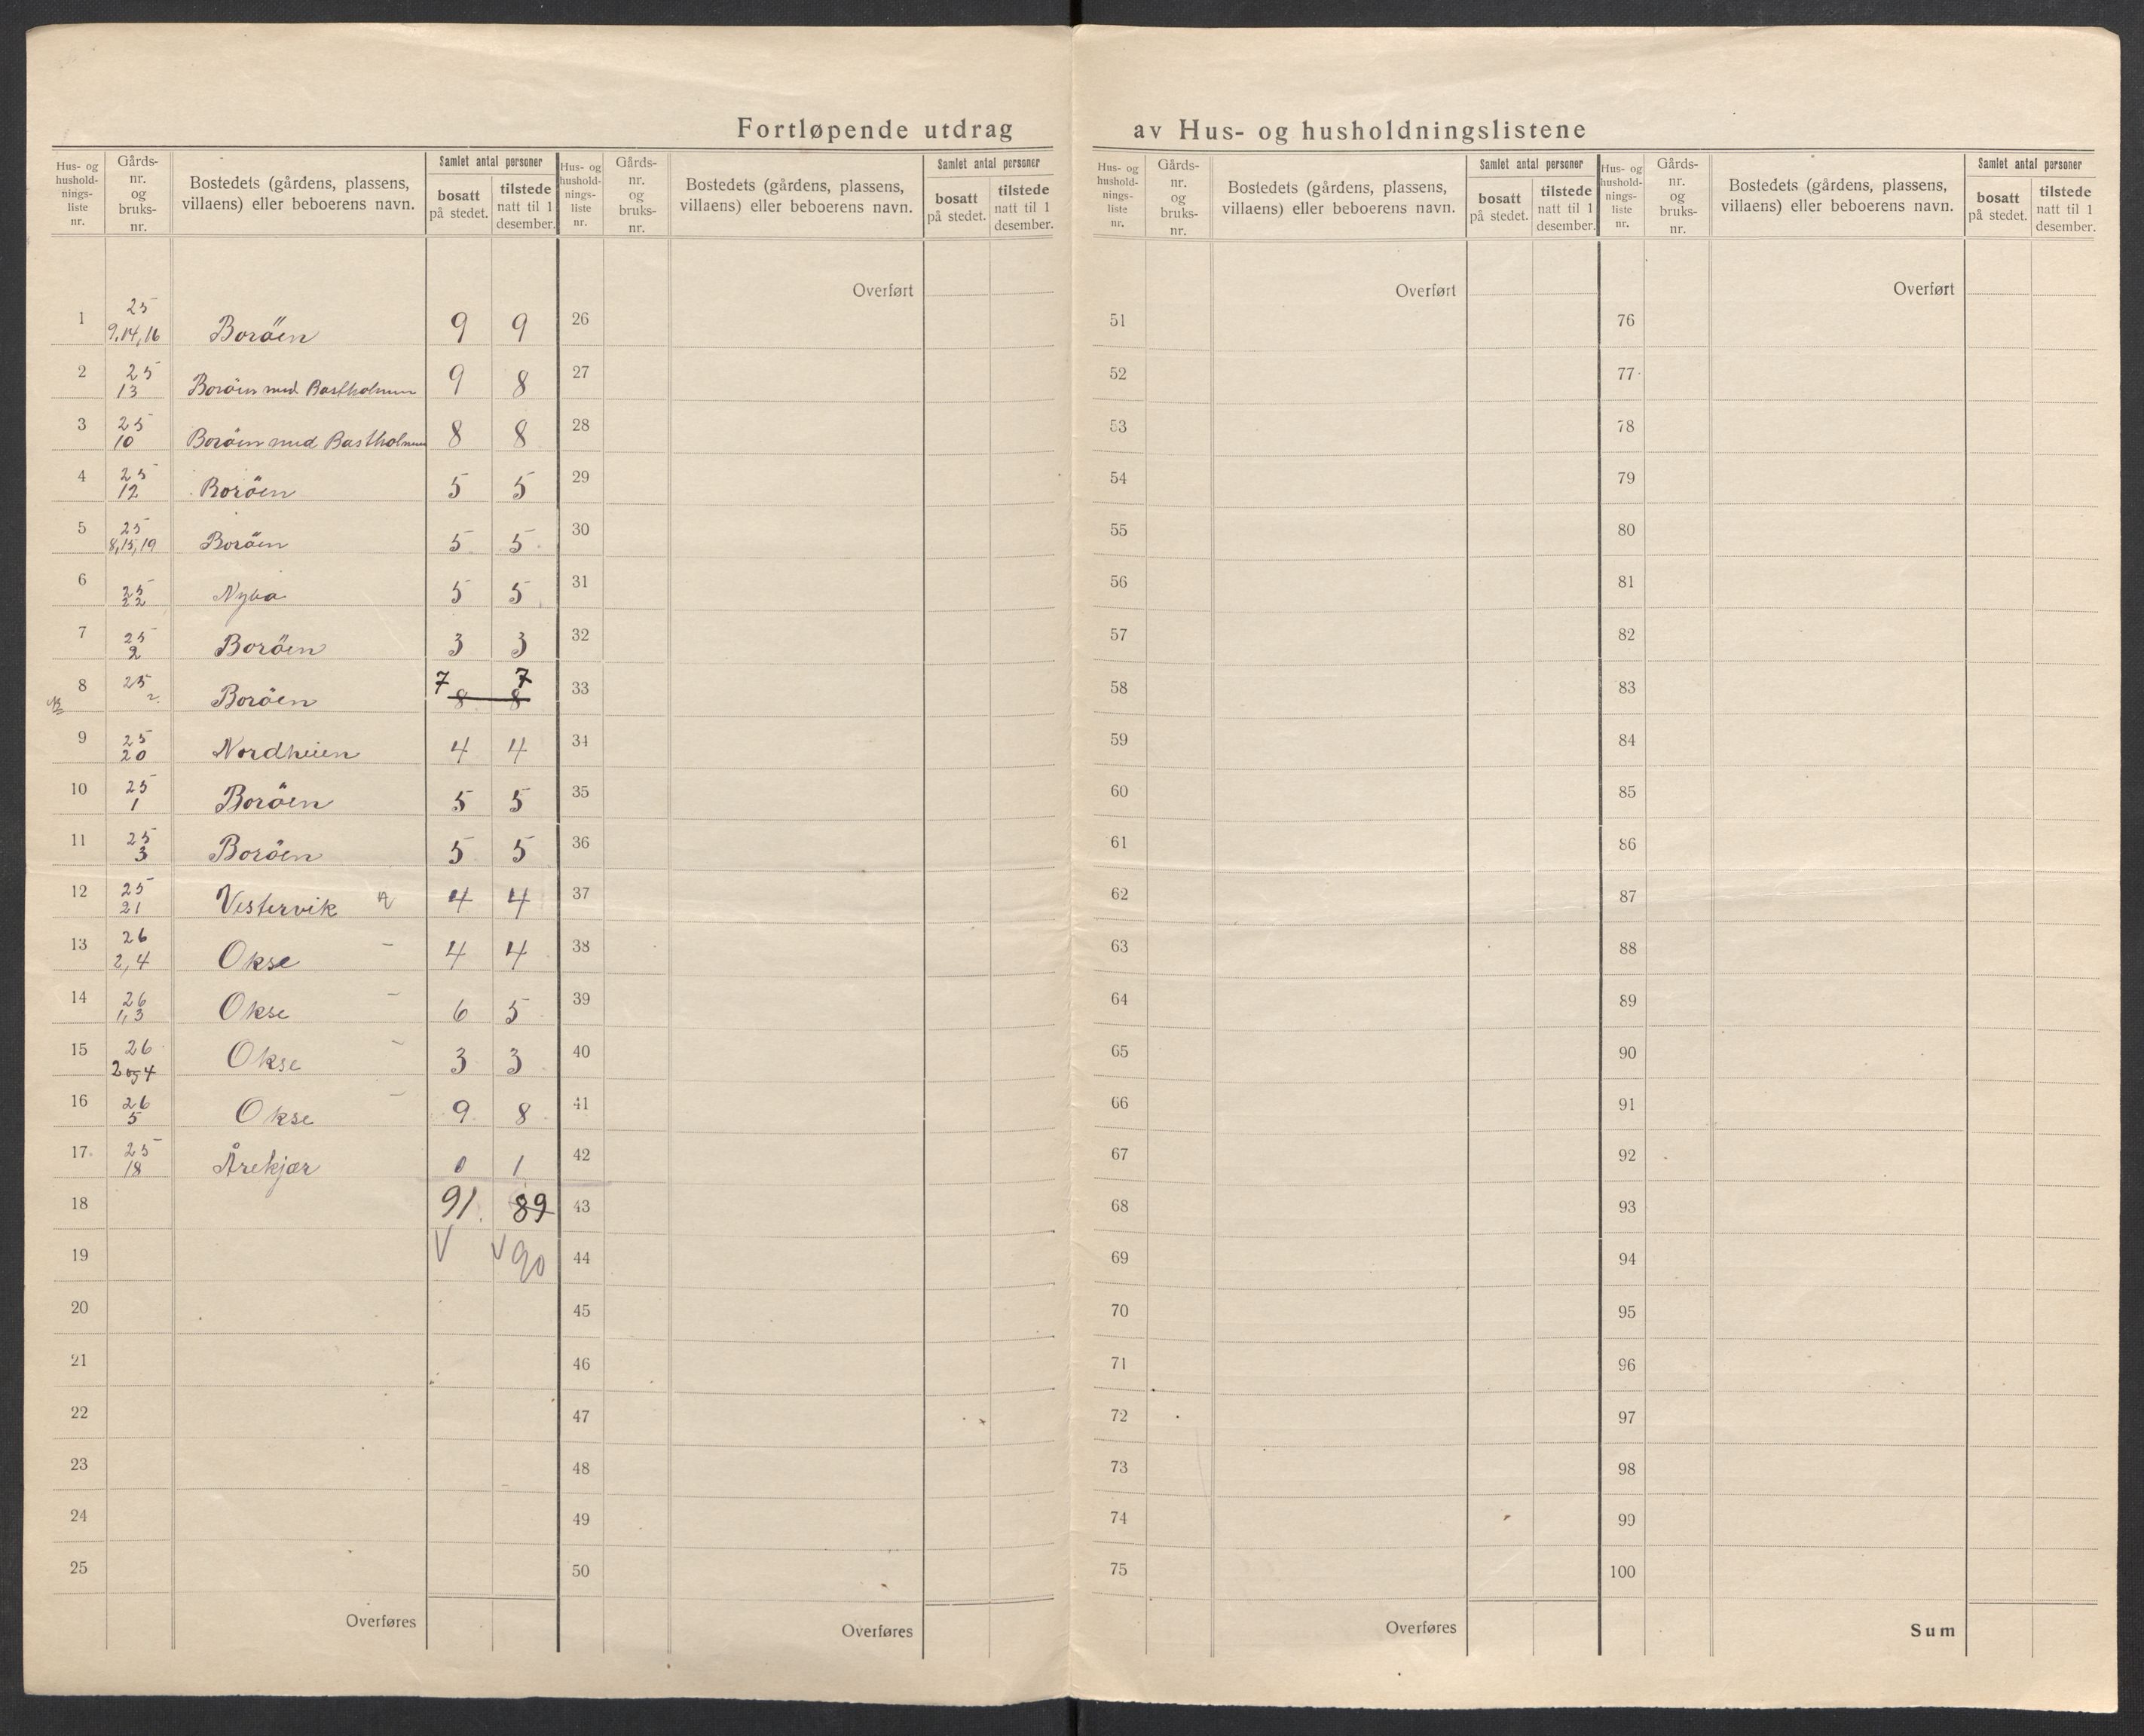 Fortløpende utdrag av Hus- og husholdningslistene
Hus- og hushold-nings-liste nr. | Gårds-nr. og bruks-nr. | Bostedets (gårdens, plassens, villaens) eller beboerens navn. | Samlet antal personer | bosatt på stedet. | tilstede natt til 1 desember.
Hus- og hushold-nings-liste nr. | Gårds-nr. og bruks-nr. | Bostedets (gårdens, plassens, villaens) eller beboerens navn. | Samlet antal personer | bosatt på stedet. | tilstede natt til 1 desember.
Hus- og hushold-nings-liste nr. | Gårds-nr. og bruks-nr. | Bostedets (gårdens, plassens, villaens) eller beboerens navn. | Samlet antal personer | bosatt på stedet. | tilstede natt til 1 desember.
Hus- og hushold-nings-liste nr. | Gårds-nr. og bruks-nr. | Bostedets (gårdens, plassens, villaens) eller beboerens navn. | Samlet antal personer | bosatt på stedet. | tilstede natt til 1 desember.
1 25 9,14,16 Boröen 9 9
2 25 13 Boröen med Bastholmen 9 8
3 25 10 Boröen med Bastholmen 8 8
4 25 12 Boröen 5 5
5 25 8,15,19 Boröen 5 5
6 25 22 5 5
7 25 2 Boröen 3 3
8 25 Boröen 7 8 7 8
9 25 20 Nordheien 4 4
10 25 1 Boröen 5 5
11 25 3 Boröen 5 5
12 25 21 Vestervik 4 4
13 26 2,4 Okse - 4 4
14 26 1,3 Okse - 6 5
15 26 2 og 4 Okse - 3 3
16 26 5 Okse - 9 8
17 25 18 Årekjær 0 1
18 91 89
19 V V 90
20
21
22
23
24
25
Overføres
Overført
26
27
28
29
30
31
32
33
34
35
36
37
38
39
40
41
42
43
44
45
46
47
48
49
50
Overføres
Overført
51
52
53
54
55
56
57
58
59
60
61
62
63
64
65
66
67
68
69
70
71
72
73
74
75
Overføres
Overført
76
77
78
79
80
81
82
83
84
85
86
87
88
89
90
91
92
93
94
95
96
97
98
99
100
Sum